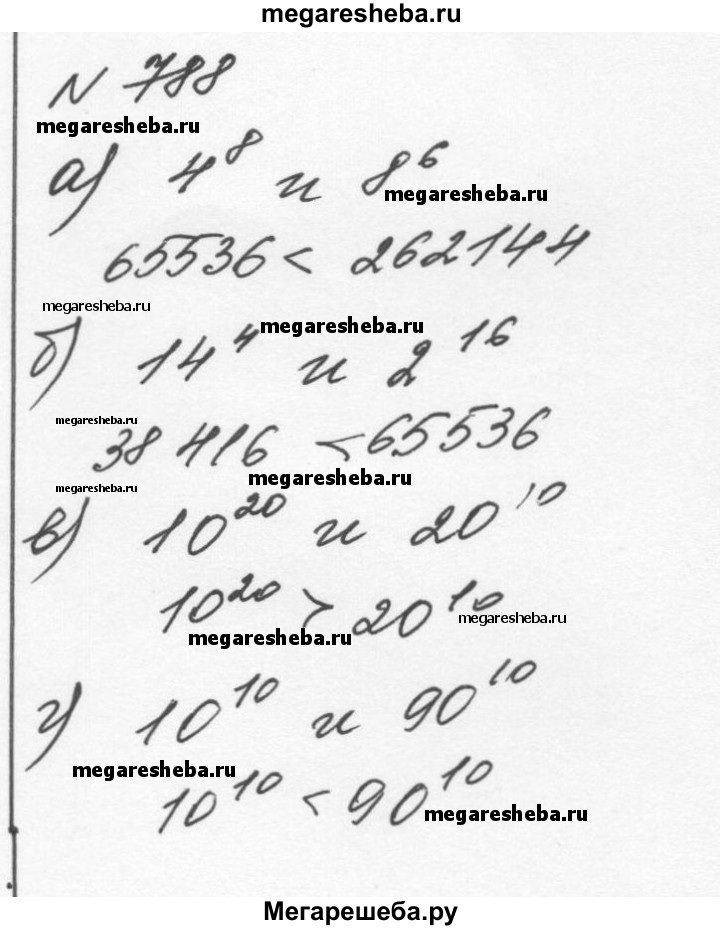 megaresheba.ru
N 788
megaresheba.ru
а) 4^8 и 8^6
megaresheba.ru
65536 < 262144
megaresheba.ru
megaresheba.ru
б) 14^4 и 2^16
megaresheba.ru
38 416 < 65536
megaresheba.ru
megaresheba.ru
в) 10^20 и 20^10
10^20 > 20^10
megaresheba.ru
megaresheba.ru
г) 10^10 и 90^10
megaresheba.ru
10^10 < 90^10
megaresheba.ru
Мегарешеба.ру